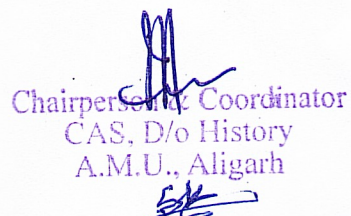 Chairperson & Coordinator
CAS, D/o History
A.M.U., Aligarh